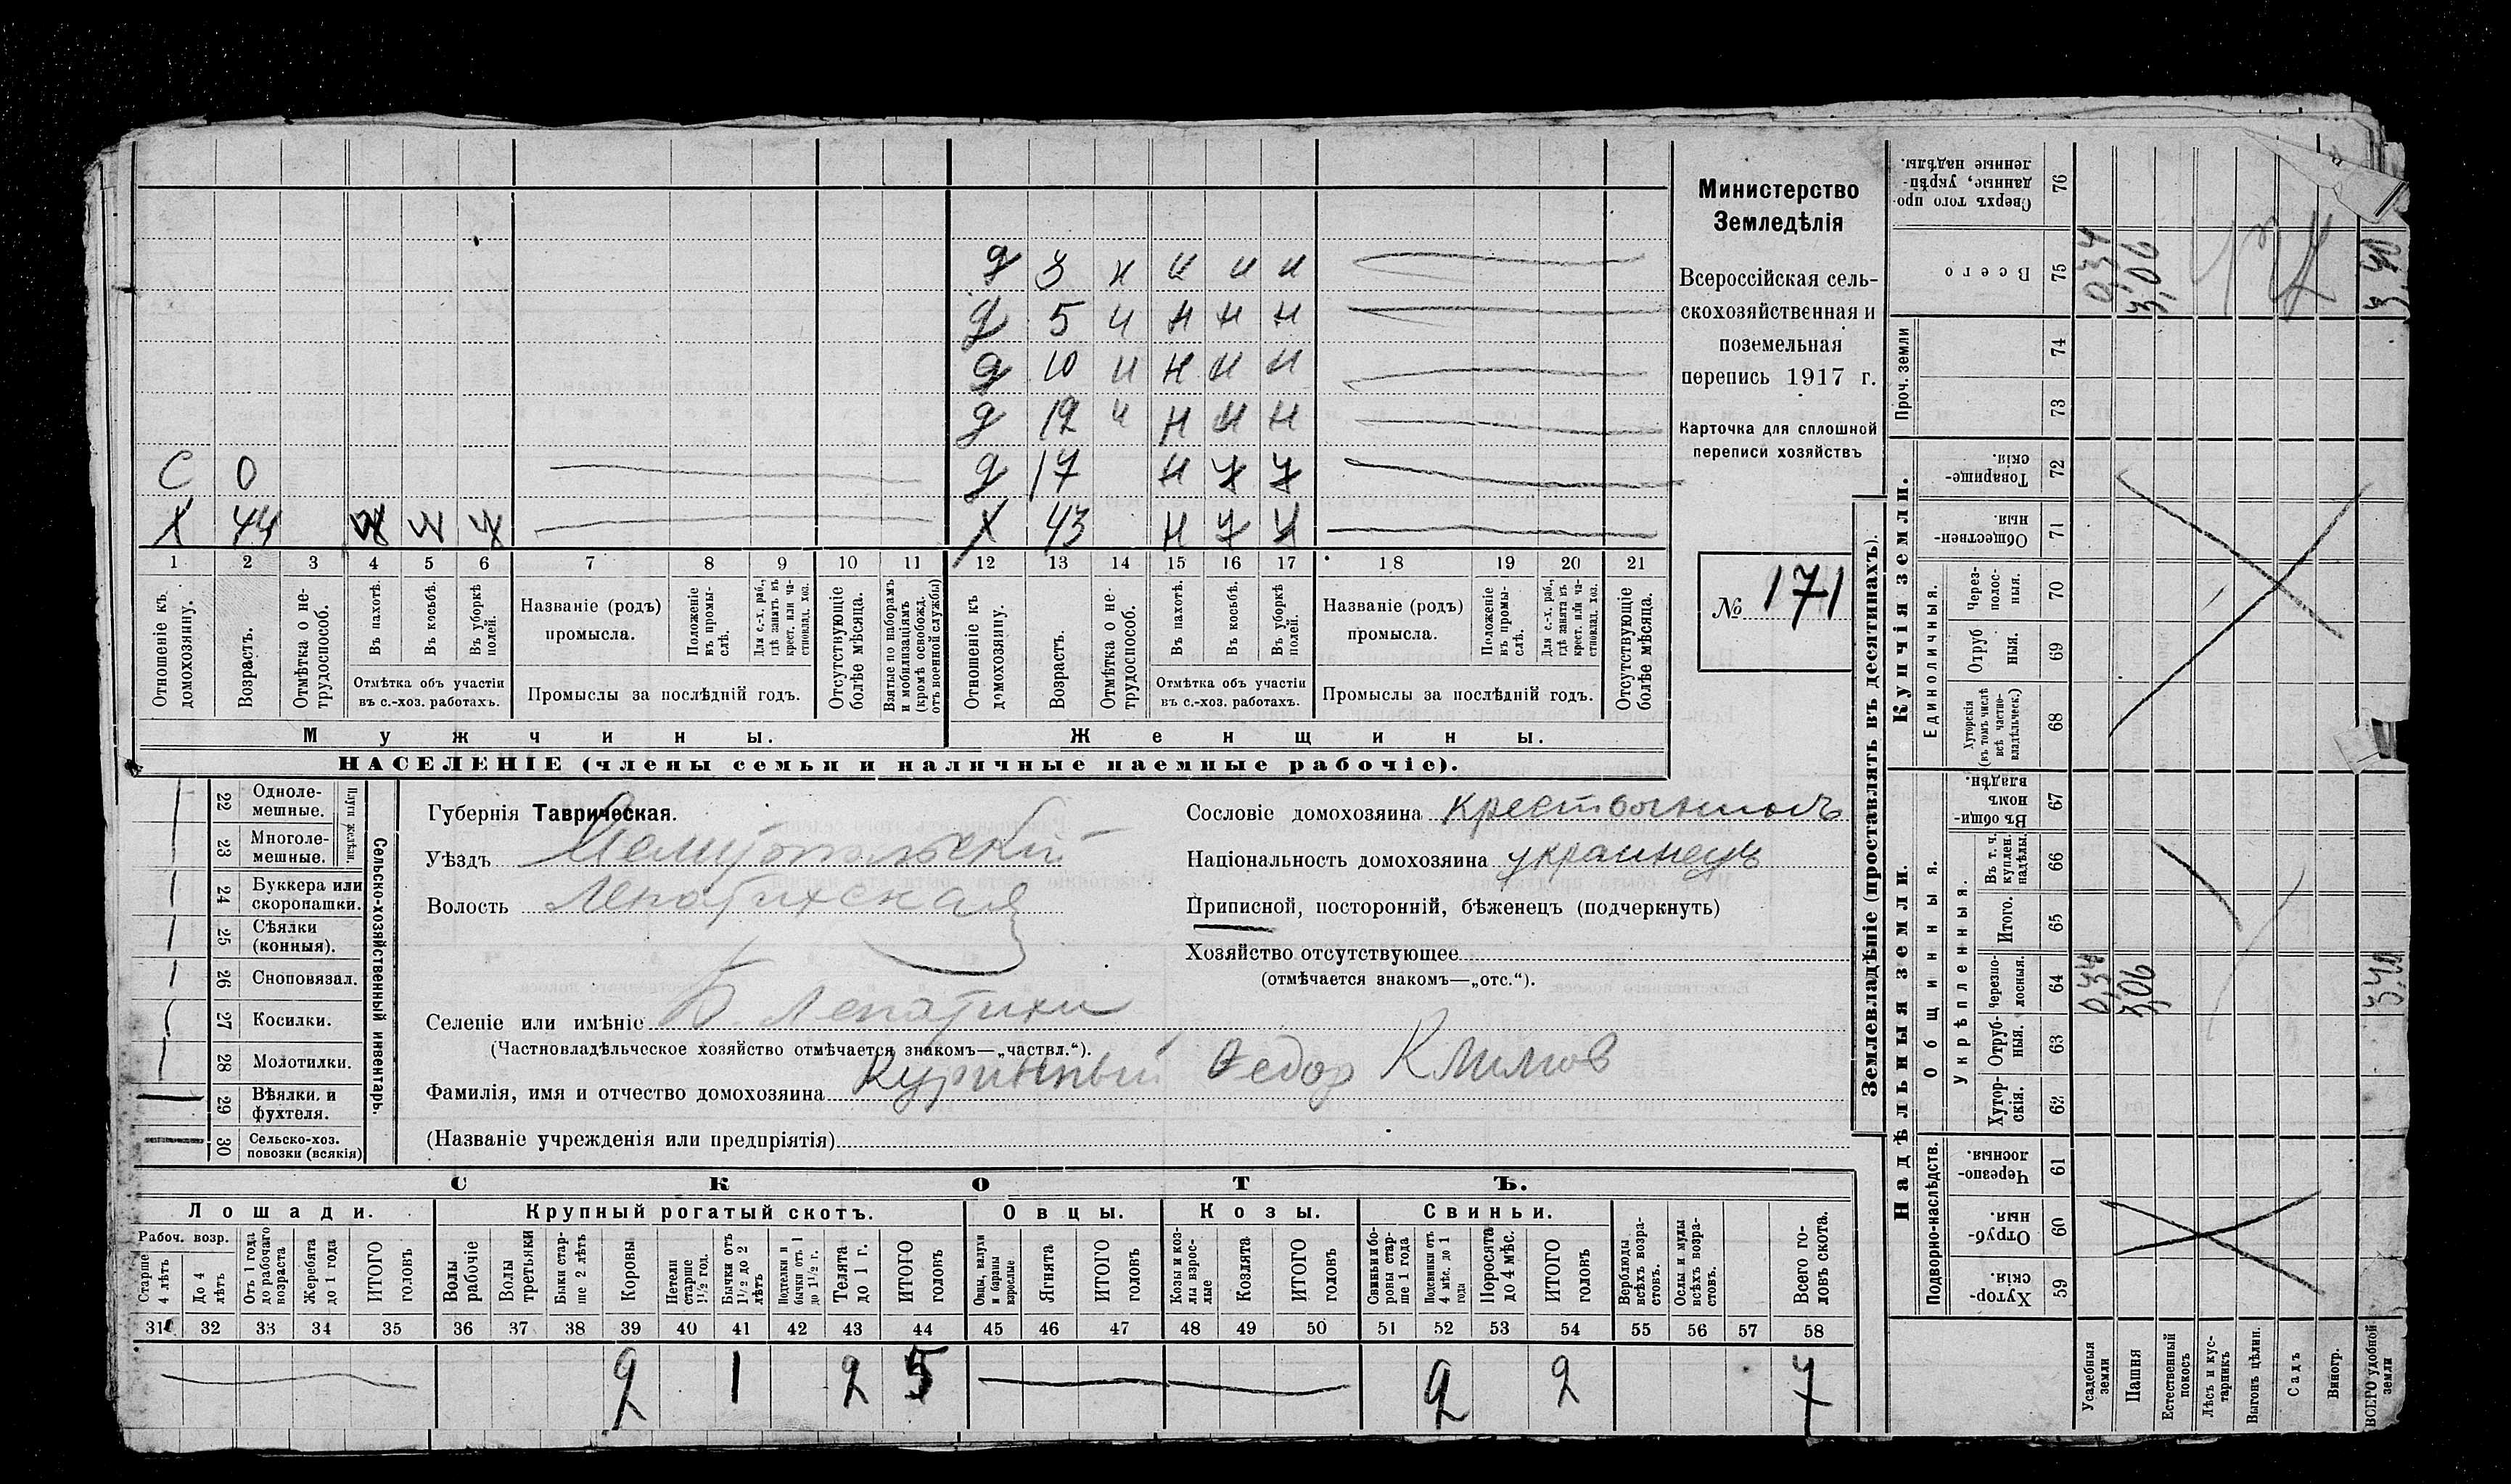 д 3 н н н н
д 5 н н н н
д 10 н н н н
д 12 н н н н
С 0 д 17 н
Х 44 Х 43 н
1 2 3 4 5 6 7 8 9 10 11 12 13 14 15 16 17 18 19 20 21
Отношеніе къ домохозяину.
Возрастъ.
Отмѣтка о не-
трудоспособ.
Въ пахотѣ.
Въ косьбѣ.
Въ уборкѣ
полей.
Отмѣтка объ участіи
въ с.-хоз. работахъ.
Названіе (родъ)
промысла.
Положеніе
въ промы-
слѣ.
Для с.-х. раб.,
гдѣ занятъ въ
крест. или ча-
стновлад. хоз.
Промыслы за послѣдній годъ.
Отсутствующіе
болѣе мѣсяца.
Взятые по наборамъ
и мобилизаціямъ
(кромѣ освобожд.
отъ военной службы)
Отношеніе къ
домохозяину.
Возрастъ.
Отмѣтка о не-
трудоспособ.
Въ пахотѣ.
Въ косьбѣ.
Въ уборкѣ
полей.
Отмѣтка объ участіи
въ с.-хоз. работахъ.
Названіе (родъ)
промысла.
Положеніе
въ промы-
слѣ.
Для с.-х. раб.,
гдѣ занята въ
крест. или ча-
стновлад. хоз.
Промыслы за послѣдній годъ.
Отсутствующіе
болѣе мѣсяца.
Мужчины. Женщины.
НАСЕЛЕНІЕ (члены семьи и наличные наемные рабочіе).
Министерство
Земледѣлія
Всероссійская сель-
скохозяйственная и
поземельная
перепись 1917 г.
Карточка для сплошной
переписи хозяйствъ
№ 171
22 Одноле-
мешные.
23 Многоле-
мешные.
Плуги желѣзн.
24 Буккера или
скоропашки.
25 Сѣялки
(конныя).
26 Сноповязал.
27 Косилки.
28 Молотилки.
29 Вѣялки и
фухтеля.
30 Сельско-хоз.
повозки (всякія)
Сельско-хозяйственный инвентарь.
Губернія Таврическая.
Уѣздъ Мелитопольскій
Волость Лепатихская
Селеніе или имѣніе Б. Лепатихи
(Частновладѣльческое хозяйство отмѣчается знакомъ—„частвл.“).
Фамилія, имя и отчество домохозяина Федор Климов
(Названіе учрежденія или предпріятія)
Сословіе домохозяина
Національность домохозяина украинецъ
Приписной, посторонній, бѣженецъ (подчеркнуть)
Хозяйство отсутствующее
(отмѣчается знакомъ—„отс.“).
СКОТЪ.
Лошади. Крупный рогатый скотъ. Овцы. Козы. Свиньи.
Рабоч. возр.
Старше
4 лѣтъ
До 4
лѣтъ
Отъ 1 года
до рабочаго
возраста
Жеребята
до 1 года
ИТОГО
головъ
Волы
рабочіе
Волы
третьяки
Быки стар-
ше 2 лѣтъ
Коровы
Нетели
старше
1½ год.
Бычки отъ
1½ до 2
лѣтъ
Подтелки и
бычки отъ 1
до 1½ г.
Телята
до 1 г.
ИТОГО
головъ
Овцы, валухи
и бараны
взрослые
Ягнята
ИТОГО
головъ
Козы и коз-
лы взрос-
лые
Козлята
ИТОГО
головъ
Свиньи и бо-
ровы стар-
ше 1 года
Подсвинки отъ
4 мѣс. до 1
года
Поросята
до 4 мѣс.
ИТОГО
головъ
Верблюды
всѣхъ возра-
стовъ.
Ослы и мулы
всѣхъ возра-
стовъ.
Всего го-
ловъ скота.
31 32 33 34 35 36 37 38 39 40 41 42 43 44 45 46 47 48 49 50 51 52 53 54 55 56 57 58
2 1 2 5 2 2 7
Землевладѣніе (проставлять въ десятинахъ).
Надѣльныя земли. Купчія земли. Проч. земли
Подворно-наслѣдств.
Общинныя.
Укрѣпленныя.
Единоличныя.
59 Хутор-
скія.
60 Отруб-
ныя.
61 Черезпо-
лосныя.
62 Хутор-
скія.
63 Отруб-
ныя.
64 Черезпо-
лосныя.
0,34 3,06 3,40
65 Итого.
66 Въ т. ч.
куплен.
надѣлы.
67 Въ общи-
номъ
владѣн.
68 Хуторскія
(въ томъ числѣ
всѣ частно-
владѣльческ.)
69 Отруб
ныя.
70 Через-
полос-
ныя.
71 Обществен-
ныя.
72 Товарище-
скія.
73
74
75 Всего
0,34 3,06 3,40
76 Сверхъ того про-
данные, укрѣп-
ленные надѣлы.
Усадебныя
земли
Пашня
Естественный
покосъ
Лѣсъ и кус-
тарникъ
Выгонъ цѣлин.
Садъ
Виногр.
ВСЕГО удобной
земли